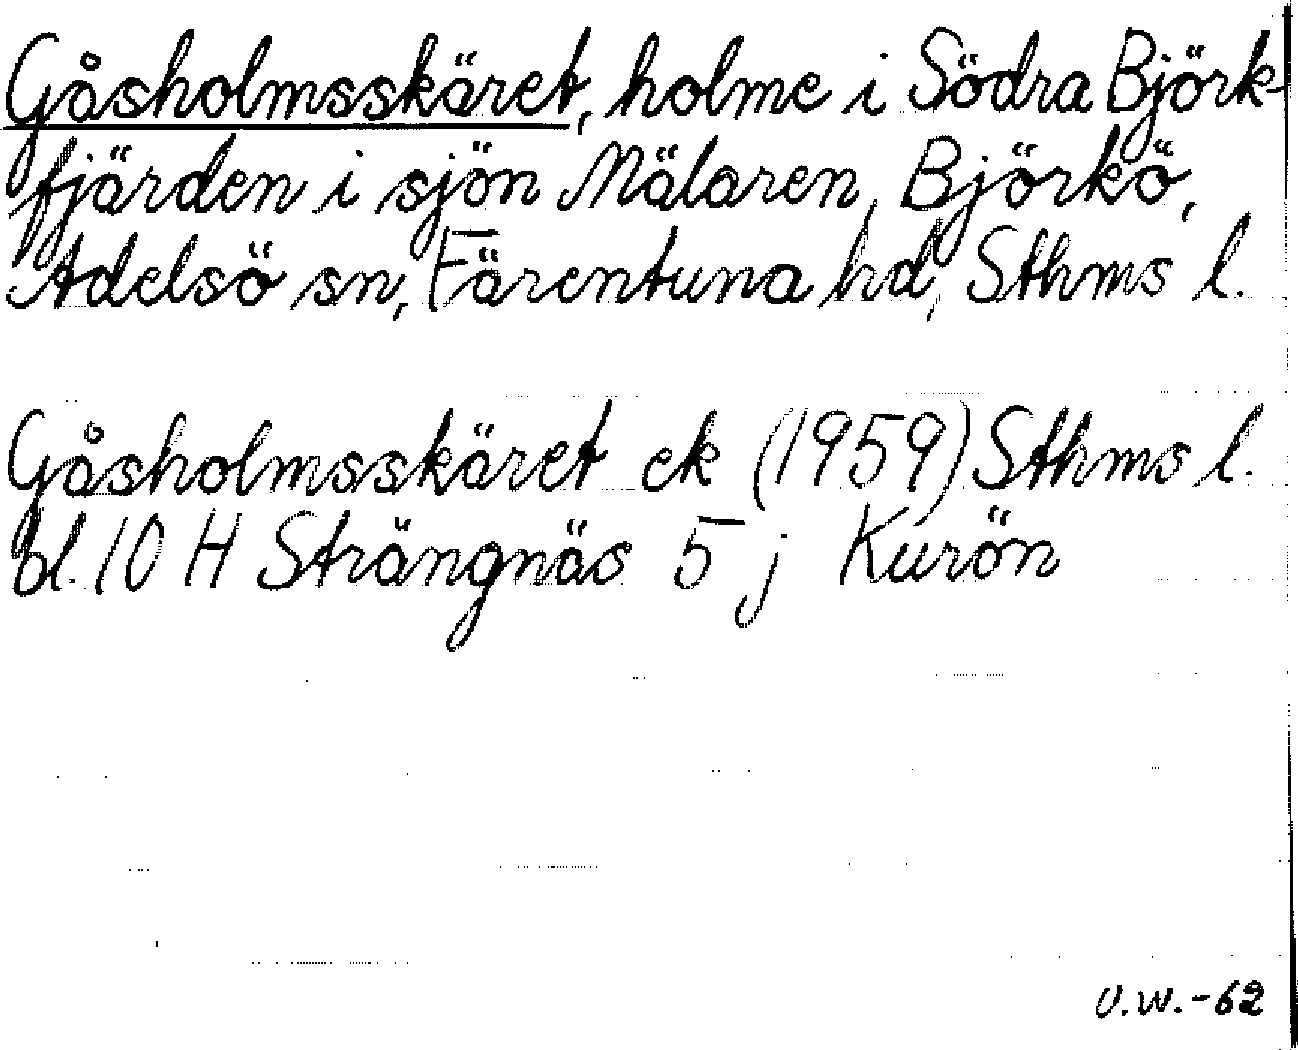 Gåsholmsskäret, holme i Södra Björk-
fjärden i sjön Mälaren, Björkö,
Adelsö sn, Färentuna hd, Sthms l.
Gåsholmsskäret ek (1959) Sthms l.
bl. 10 H Strängnäs 5 j Kurön
U.W.-62